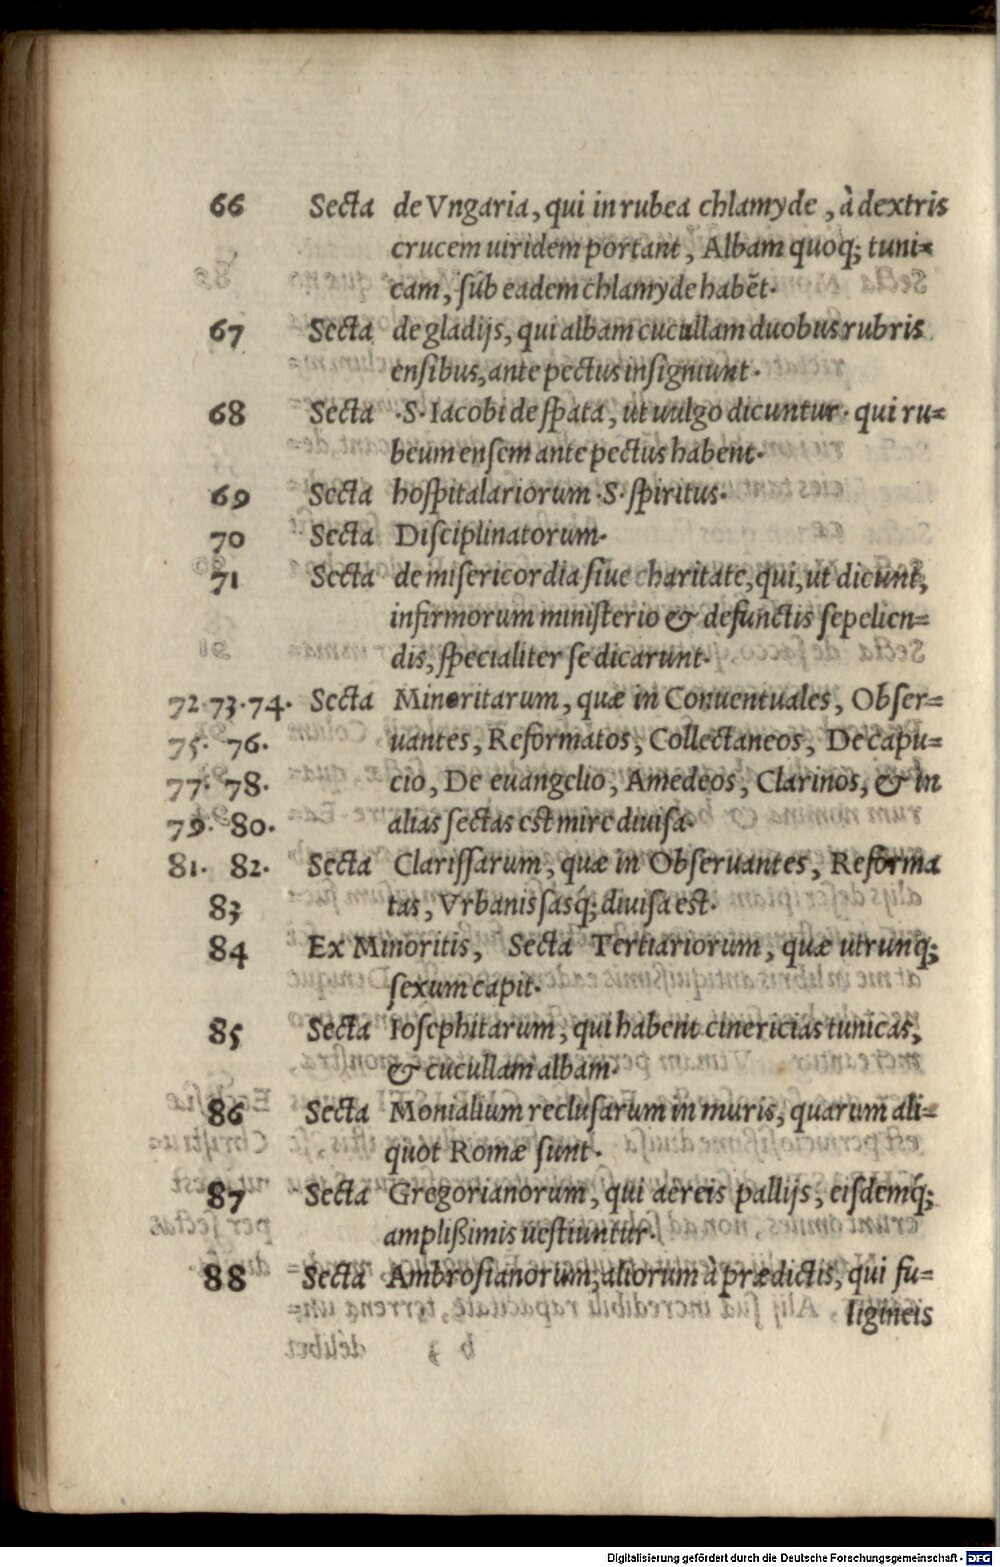 66 Secta de Vngaria, qui in rubea chlamyde, à dextris
crucem uiridem portant, Albam quoq; tuni=
cam, sub eadem chlamyde habēt.
67 Secta de gladijs, qui albam cucullam duobus rubris
ensibus, ante pectus insigniunt.
68 Secta .S. Iacobi de spata, ut uulgo dicuntur. qui ru=
beum ensem ante pectus habent.
69 Secta hospitalariorum .S. spiritus.
70 Secta Disciplinatorum.
71 Secta de misericordia siue charitate, qui, ut dicunt,
infirmorum ministerio & defunctis sepelien=
dis, specialiter se dicarunt.
72.73.74. Secta Minoritarum, quæ in Conuentuales, Obser=
75. 76. uantes, Reformatos, Collectaneos, De capu=
77. 78. cio, De euangelio, Amedeos, Clarinos, & in
79. 80. alias sectas est mire diuisa.
81. 82. Secta Clarissarum, quæ in Obseruantes, Reforma
83 tas, Vrbanissasq́; diuisa est.
84 Ex Minoritis, Secta Tertiariorum, quæ utrunq;
sexum capit.
85 Secta Iosephitarum, qui habent cinericias tunicas,
& cucullam albam.
86 Secta Monialium reclusarum in muris, quarum ali=
quot Romæ sunt.
87 Secta Gregorianorum, qui aereis pallijs, eisdemq́;
amplißimis uestiuntur.
88 Secta Ambrosianorum, aliorum à prædictis, qui fu=
ligineis
Digitalisierung gefördert durch die Deutsche Forschungsgemeinschaft - DFG